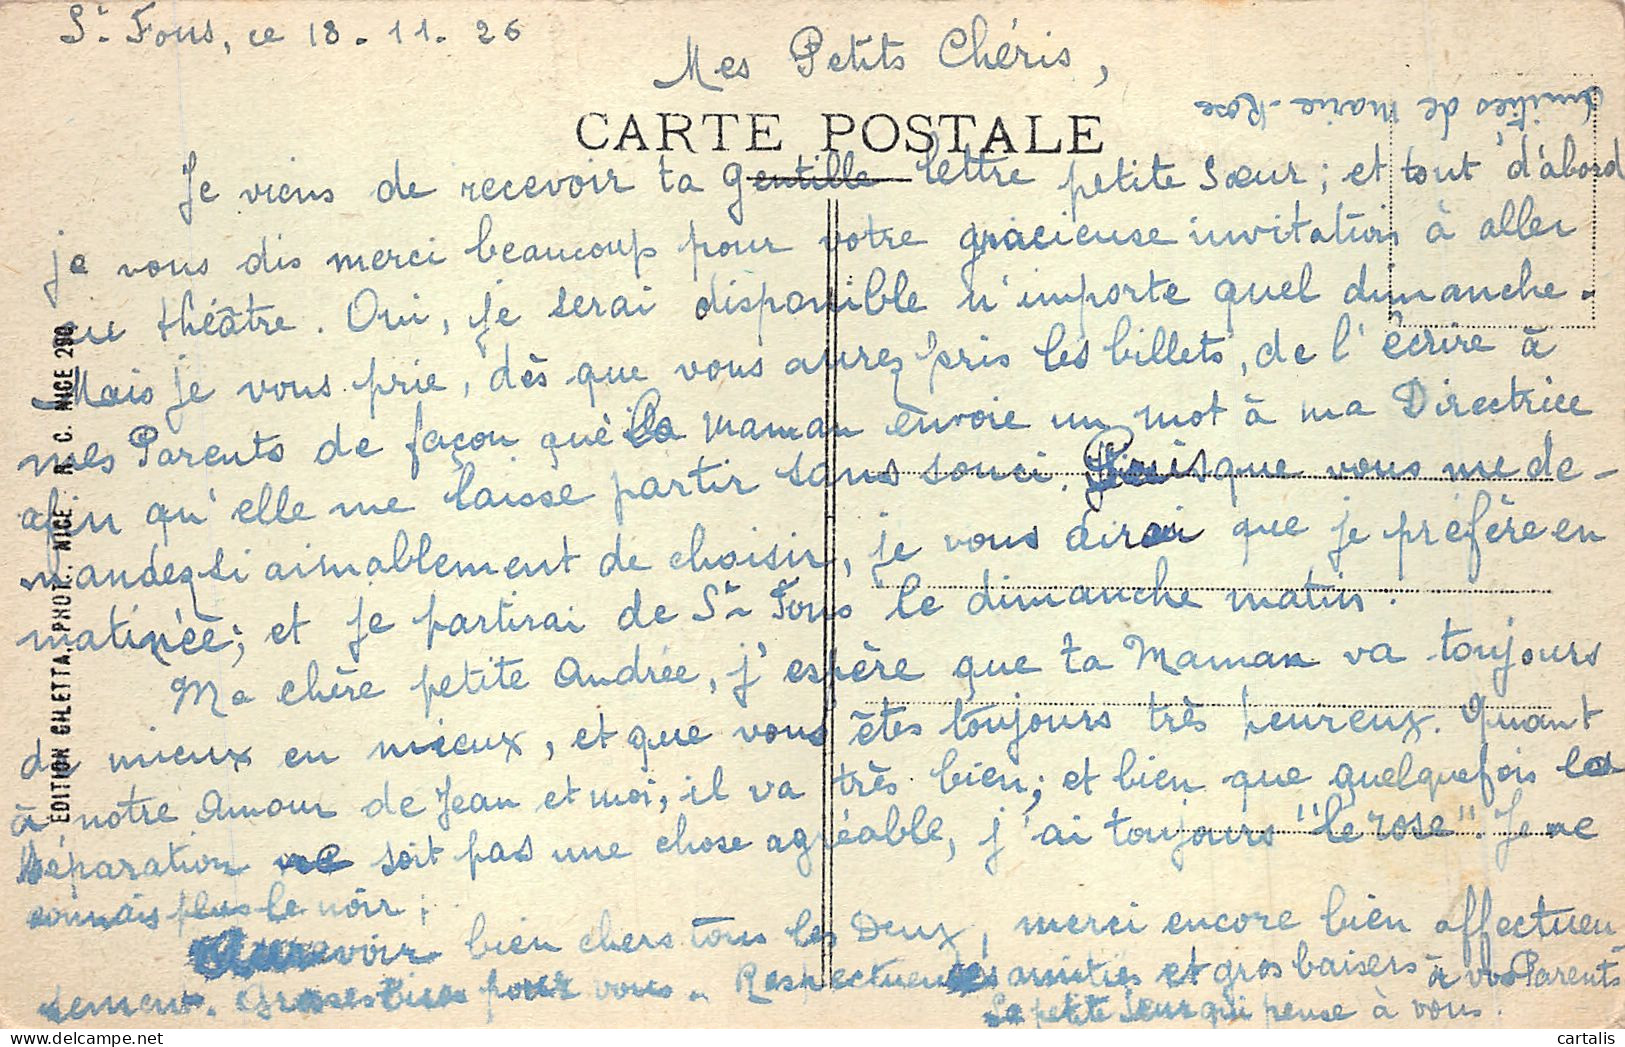 St Fons, ce 18-11-26
Mes Petits Chéris,
Amitiés de Marie-Rose
CARTE POSTALE
Je viens de recevoir ta gentille lettre petite Sœur; et tout d'abord
je vous dis merci beaucoup pour votre gracieuse invitation à aller
au théâtre. Oui, je serai disponible n'importe quel dimanche.
Mais je vous prie, dès que vous aurez pris les billets, de l'écrire à
mes Parents de façon que la Maman envoie un mot à ma Directrice
afin qu'elle me laisse partir sans souci. Puisque vous me de-
mandez si aimablement de choisir, je vous dirai que je préfère en
matinée; et je partirai de St Fons le dimanche matin.
Ma chère petite Andrée, j'espère que ta Maman va toujours
de mieux en mieux, et que vous êtes toujours très heureux. Quant
à notre Amour de Jean et moi, il va très bien; et bien que quelquefois la
séparation ne soit pas une chose agréable, j'ai toujours "le rose". Je ne
connais plus le noir;
Au revoir bien chers tous les Deux, merci encore bien affectueu-
sement. Grosses bises pour vous. Respectueuses amitiés et gros baisers à vos Parents
La petite Sœur qui pense à vous.
EDITION GILETTA, PHOT., NICE R. C. NICE 290
cartalis